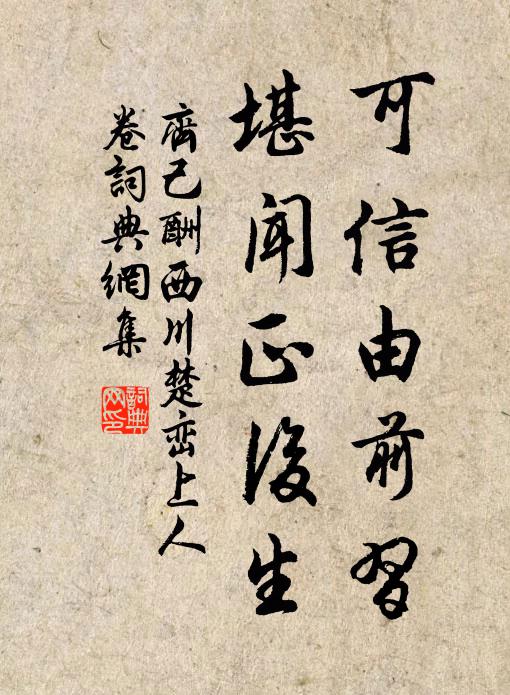 可信由前習
堪聞正後生
齊己酬西川楚巒上人
卷詞典網集
詞典
网印